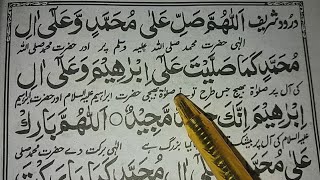 درود شریف اَللّٰهُمَّ صَلِّ عَلٰى مُحَمَّدٍ وَّعَلٰٓى اٰلِ
الٰہی حضرت محمد صلی اللہ علیہ وسلم پر اور حضرت محمد صلی اللہ
مُحَمَّدٍ كَمَا صَلَّيْتَ عَلٰٓى اِبْرٰهِيْمَ وَعَلٰٓى اٰلِ
کی آل پر صلوٰۃ بھیج جس طرح تو نے صلوٰۃ بھیجی حضرت ابراہیم علیہ السلام اور حضرت ابراہیم
اِبْرٰهِيْمَ اِنَّكَ حَمِيْدٌ مَّجِيْدٌ ۞ اَللّٰهُمَّ بَارِكْ
علیہ السلام کی آل پر بیشک بزرگ ہے الٰہی برکت دے حضرت محمد صلی
عَلٰى مُحَمَّدٍ وَّعَلٰٓى اٰلِ مُحَمَّدٍ كَمَا بَارَكْتَ